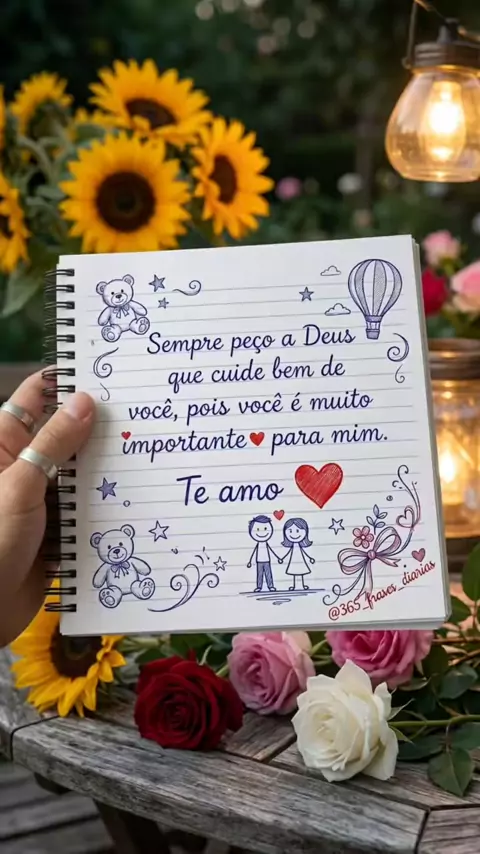 Sempre peço a Deus
que cuide bem de
você, pois você é muito
importante para mim.
Te amo
@365_frases_diarias